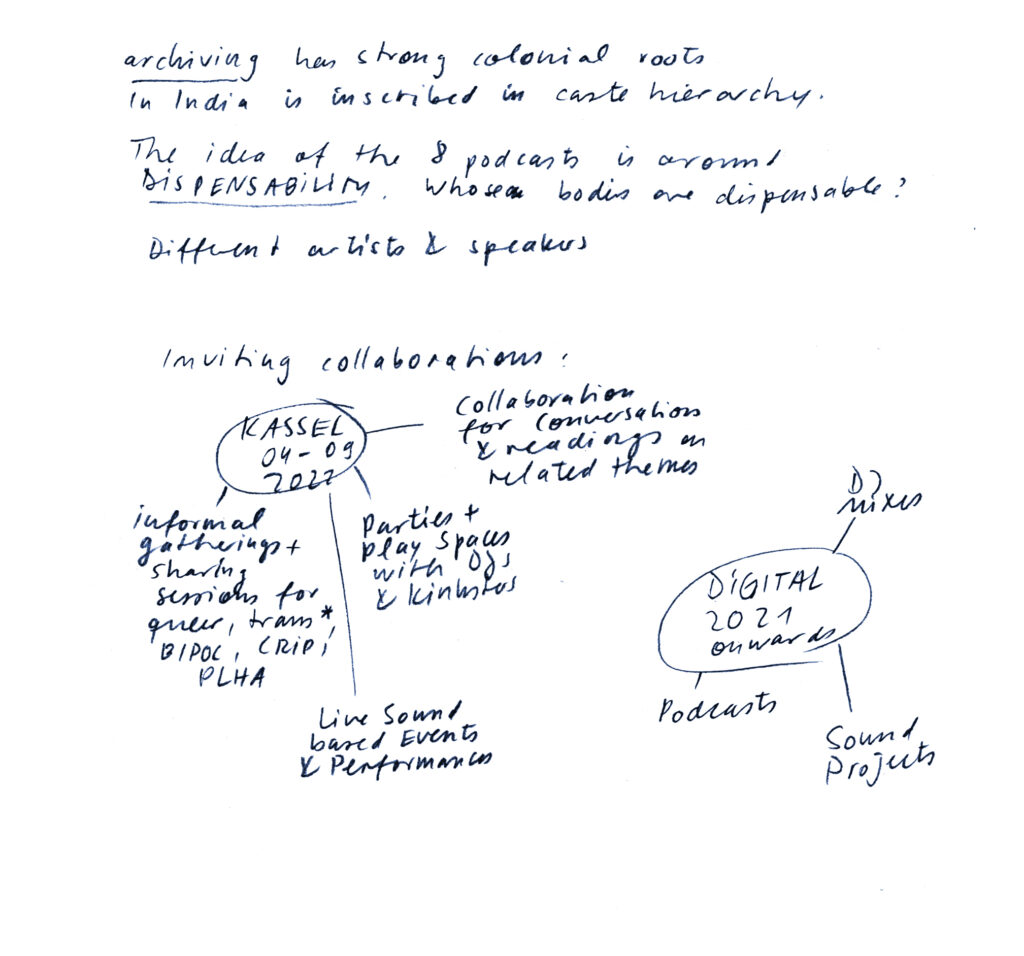 archiving has strong colonial roots
In India is inscribed in caste hierarchy.
The idea of the 8 podcasts is around
DISPENSABILITY. Whose bodies are dispensable?
Different artists & speakers
Inviting collaborations:
KASSEL
04-09
2022
Collaboration
for conversation
& readings on
related themes
informal
gatherings +
sharing
sessions for
queer, trans*,
BIPOC, CRIP,
PLHA
Parties +
play spaces
with DJs
& kinksters
Live Sound
based Events
& Performances
DJ
mixes
DIGITAL
2021
onwards
Podcasts
Sound
Projects